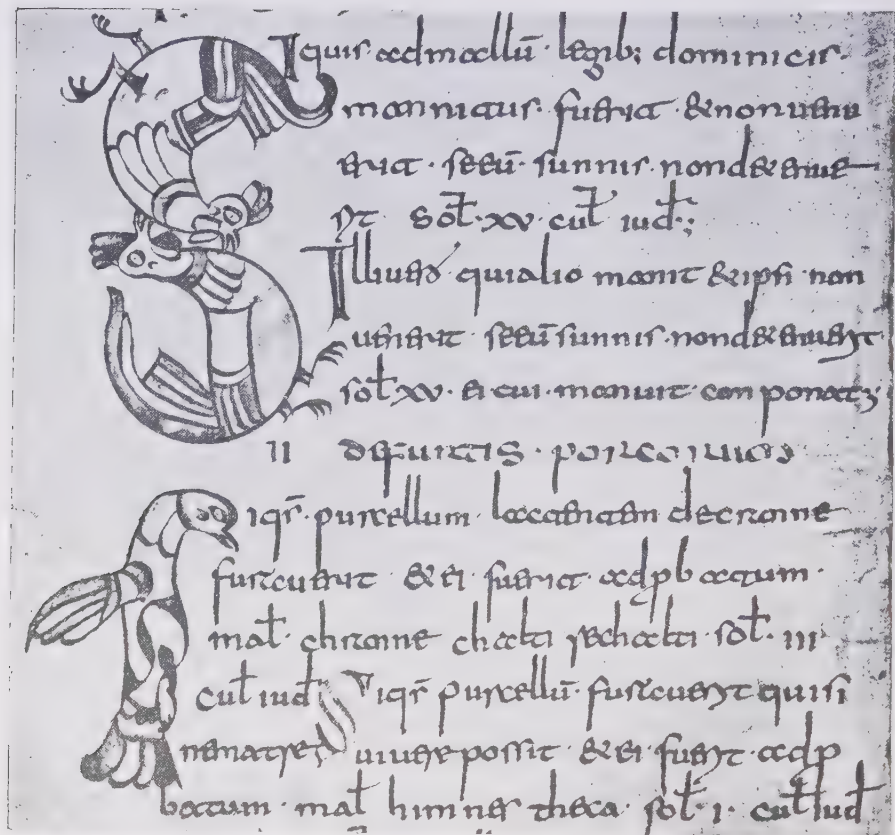 Siquis admallū · legib; dominicis ·
mannitus · fuerit · & non uenu
erit · se eū · sunnis · non detenue
rit sol · xv · cul iud ·;
Ille uero qui alio manit & ipsi non
uenerit se eū sunnis · non detenuerit
sol xv · ei cui · manuit · componat;
II de furtis · porcorum
Siqs · purcellum · lactantem de cranne
furauerit & ei · fuerit · adp batum ·
mal · chranne chalti rechalti · sol · iii ·
cul iud Siqs purcellū · furauerit qui si
ne matre uiuere possit · & ei · fuerit · adp
batum · mal himnes theca · sol · i · cul iud